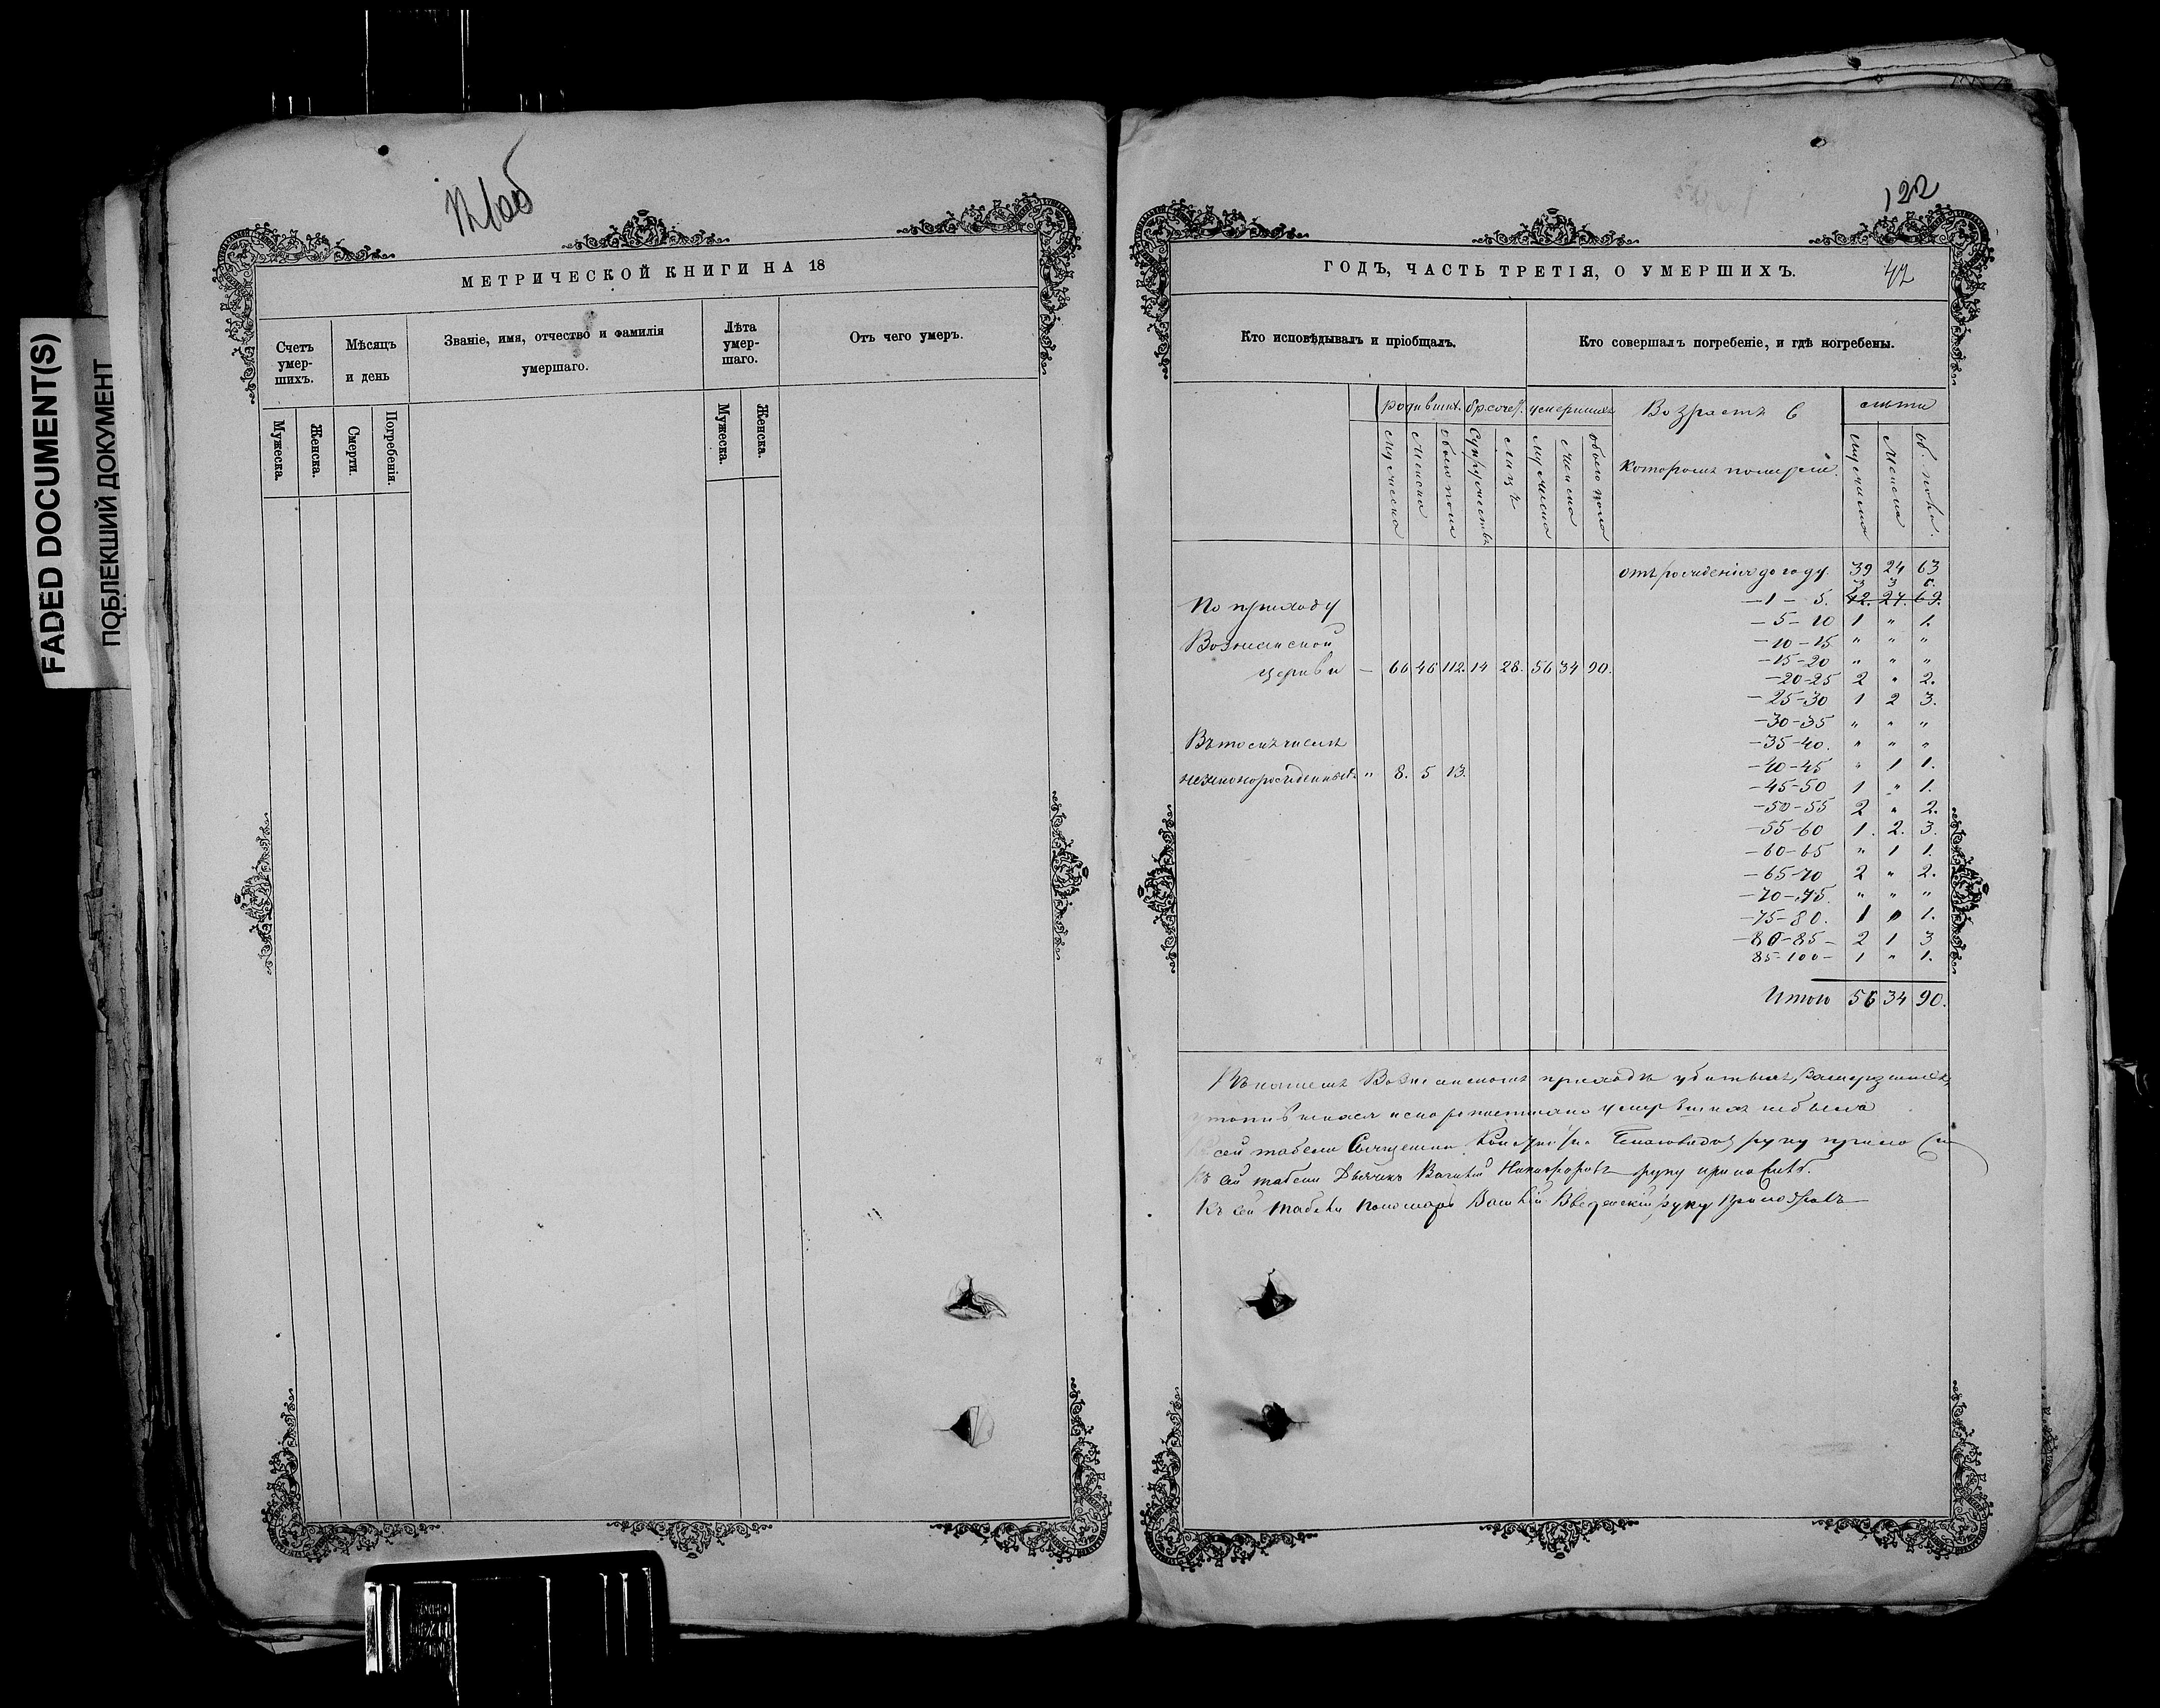 FADED DOCUMENT(S)
ПОБЛЕКШИЙ ДОКУМЕНТ
МЕТРИЧЕСКОЙ КНИГИ НА 18
Счетъ умер-
шихъ.
Мѣсяцъ
и день
Званіе, имя, отчество и фамилія
умершаго.
Лѣта
умер-
шаго.
Отъ чего умеръ.
Мужеска.
Женска.
Смерти.
Погребенія.
Мужеска.
Женска.
122
ГОДЪ, ЧАСТЬ ТРЕТІЯ, О УМЕРШИХЪ.
42
Кто исповѣдывалъ и пріобщалъ.
Кто совершалъ погребеніе, и гдѣ погребены.
родивших. бр.сочет. умершихъ
Возрастъ в
которомъ померли.
мужеска
женска
обоего пола
супружествъ
лицъ
мужеска
женска
обоего пола
мужеска
женска
об. пола.
отъ рожденія до году. 39 24 63
3 3 6.
—1— 5. 42. 27. 69.
По приходу
—5—10 1 " 1.
Вознесенской
—10—15 " " "
—15—20 " " "
церкви — 66 46 112. 14 28. 56 34 90.
—20-25 2 " 2.
—25-30 1 2 3.
—30-35 " " "
Въ томъ числѣ
—35-40. " " "
незаконорожденныхъ " 8. 5 13.
—40-45 " 1 1.
—45-50 1 " 1.
—50-55 2 " 2.
—55-60 1. 2. 3.
—60-65 " 1 1.
—65-70 2 " 2.
—70-75. " " "
—75-80. 1 " 1.
—80-85— 2 1 3
85-100— 1 " 1.
Итого 56 34 90.
Въ нашемъ Вознесенскомъ приходѣ убитыхъ, замерзшихъ,
утопившихся и скоропостижно умершихъ небыло
сей табели Священникъ руку прило
Къ сей табели Дьячекъ Василій Никифоровъ руку приложилъ.
Къ сей табели пономарь Василій Введенскій руку приложилъ